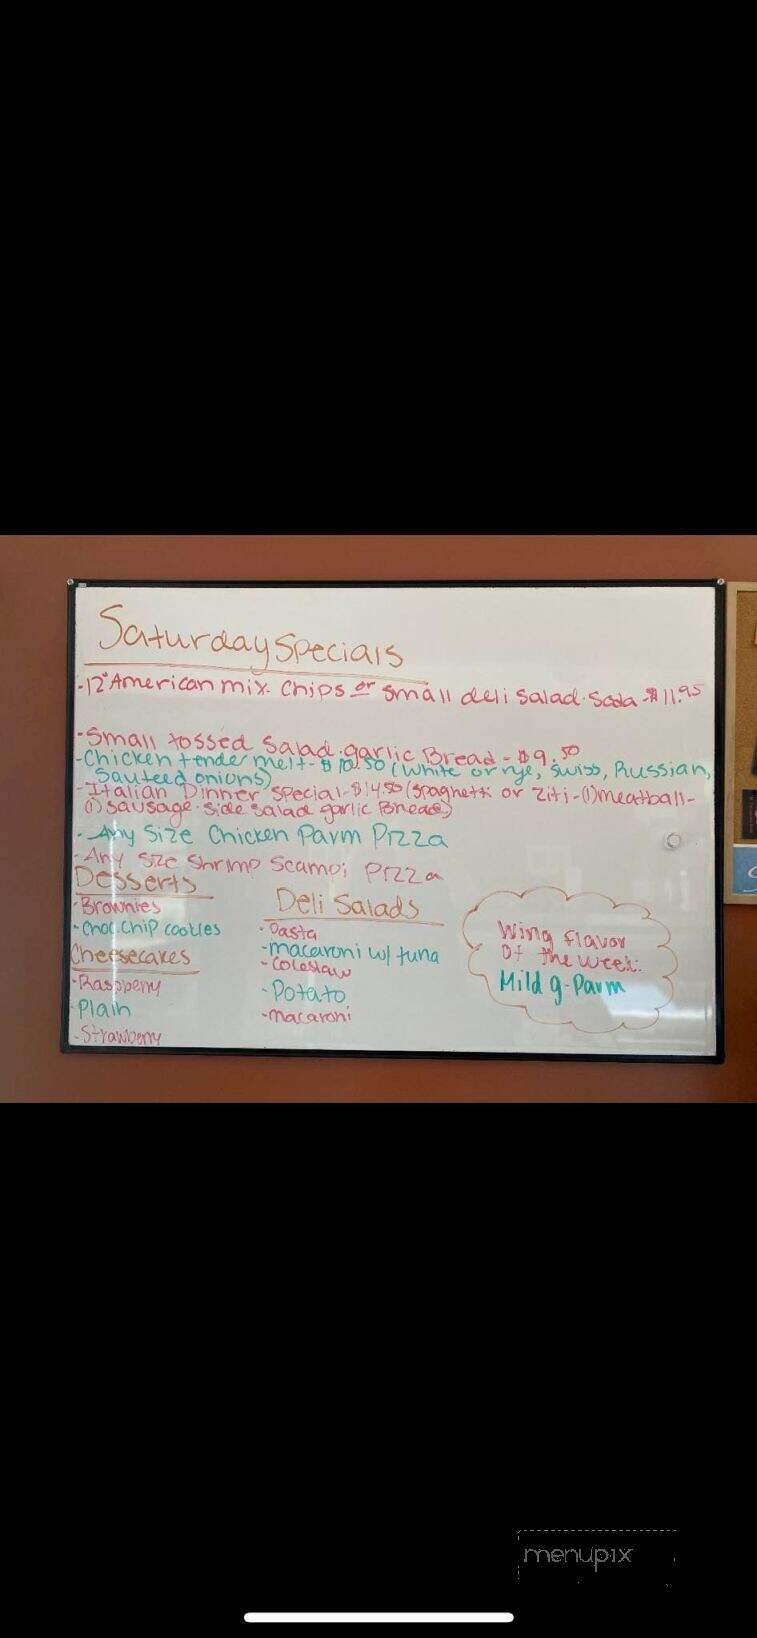 Saturday Specials
-12" American mix. Chips or small deli salad. Soda -$11.95
-Small tossed salad. garlic Bread - $9.50
-Chicken tender melt-$10.50 (White or rye, Swiss, Russian,
Sauteed onions)
-Italian Dinner special-$14.50 (spaghetti or Ziti-(1) meatball-
(1) sausage. side salad garlic Bread)
-Any Size Chicken Parm Pizza
-Any size Shrimp Scampi Pizza
Desserts
-Brownies
-Choc. Chip cookies
Cheesecakes
-Raspberry
-Plain
-Strawberry
Deli Salads
-Pasta
-macaroni w/ tuna
-Coleslaw
-Potato
-macaroni
Wing flavor
Of the Week:
Mild g-Parm
menupix